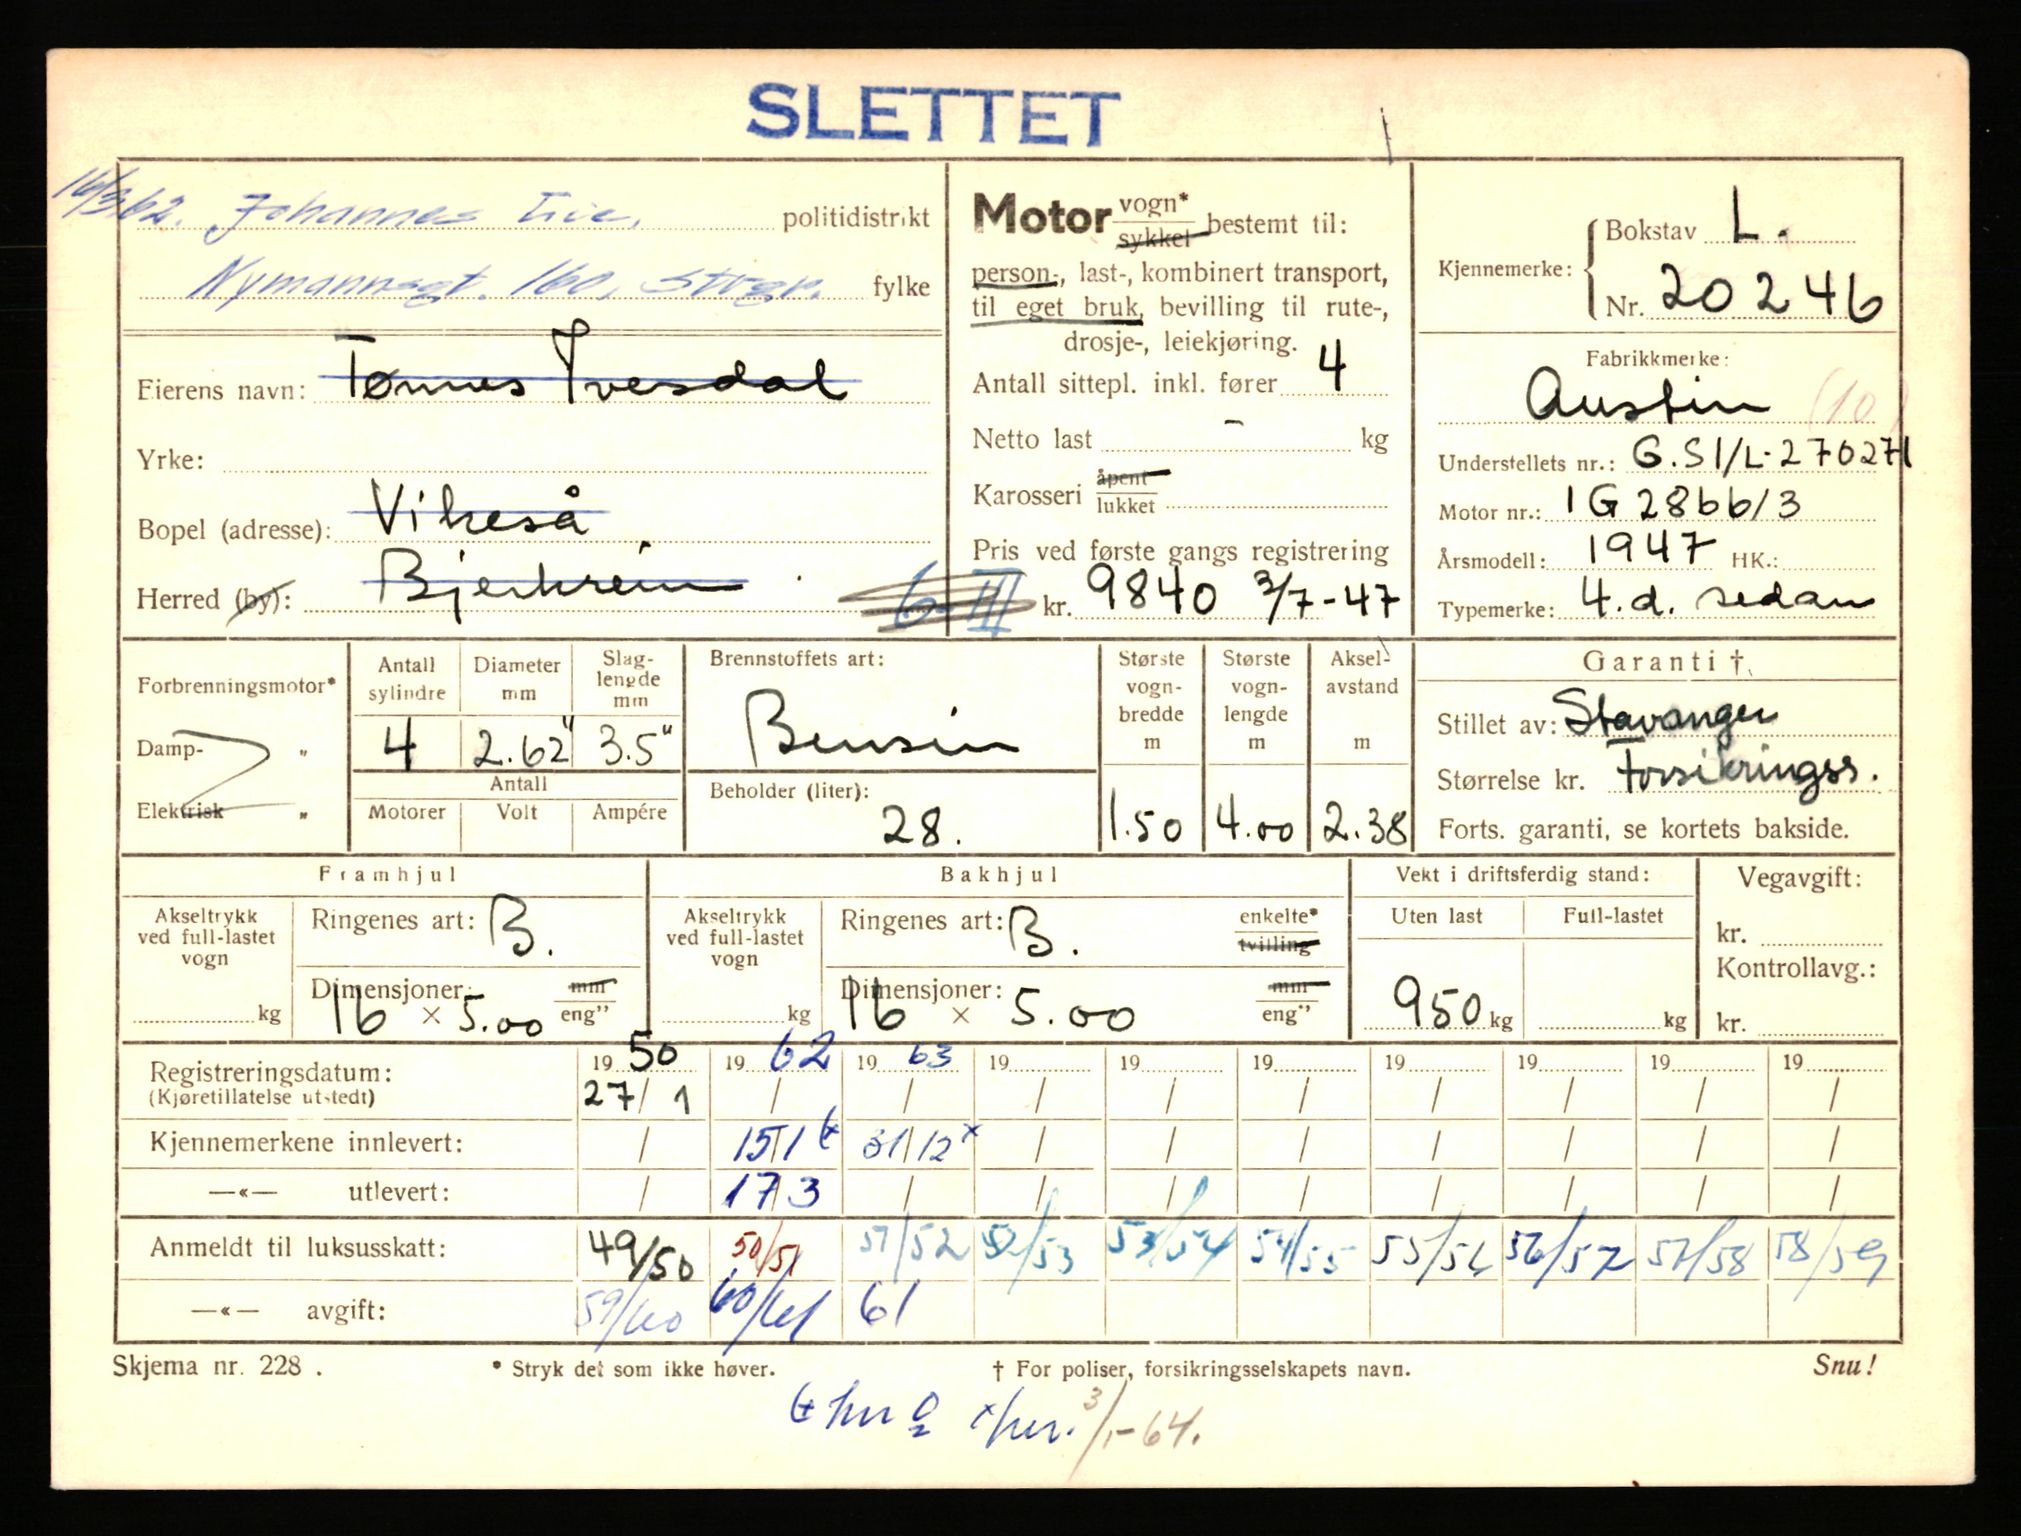 SLETTET
16/3.62. Johannes politidistrikt
Nymannsgt. 160, Stvgr. fylke
Eierens navn: Tønnes Ivesdal
Yrke:
Bopel (adresse): Vikeså
Herred (by): Bjerkreim
6-III
Motor vogn* / sykkel bestemt til:
person-, last-, kombinert transport,
til eget bruk, bevilling til rute-,
drosje-, leiekjøring.
Antall sittepl. inkl. fører 4
Netto last - kg
Karosseri åpent / lukket
Pris ved første gangs registrering
kr. 9840 3/7-47
Kjennemerke: Bokstav L.
Nr. 20246
Fabrikkmerke:
Austin (10)
Understellets nr.: G.S1/L-270271
Motor nr.: 1G2866/3
Årsmodell: 1947 HK.:
Typemerke: 4.d. sedan
Forbrenningsmotor*
Damp- "
Elektrisk "
Antall sylindre Diameter mm Slaglengde mm
4 2.62" 3.5"
Antall
Motorer Volt Ampére
Brennstoffets art:
Bensin
Beholder (liter):
28.
Største vogn-bredde m
1.50
Største vogn-lengde m
4.00
Aksel-avstand m
2.38
Garanti †
Stillet av: Stavanger
Størrelse kr. Forsikringss.
Forts. garanti, se kortets bakside.
Framhjul
Akseltrykk ved full-lastet vogn
kg
Ringenes art: B.
Dimensjoner: mm / eng"
16 × 5.00
Bakhjul
Akseltrykk ved full-lastet vogn
kg
Ringenes art: B. enkelte* / tvilling
Dimensjoner: mm / eng"
16 × 5.00
Vekt i driftsferdig stand:
Uten last Full-lastet
950 kg kg
Vegavgift:
kr.
Kontrollavg.:
kr.
Registreringsdatum: 1950 1962 1963 19 19 19 19 19 19 19
(Kjøretillatelse utstedt) 27/1 / / / / / / / / /
Kjennemerkene innlevert: / 15/1 31/12 x / / / / / / /
—«— utlevert: / 17/3 / / / / / / / /
Anmeldt til luksusskatt: 49/50 50/51 51/52 52/53 53/54 54/55 55/56 56/57 57/58 58/59
—«— avgift: 59/60 60/61 61
Skjema nr. 228 . * Stryk det som ikke høver. † For poliser, forsikringsselskapets navn. Snu!
3/1-64.